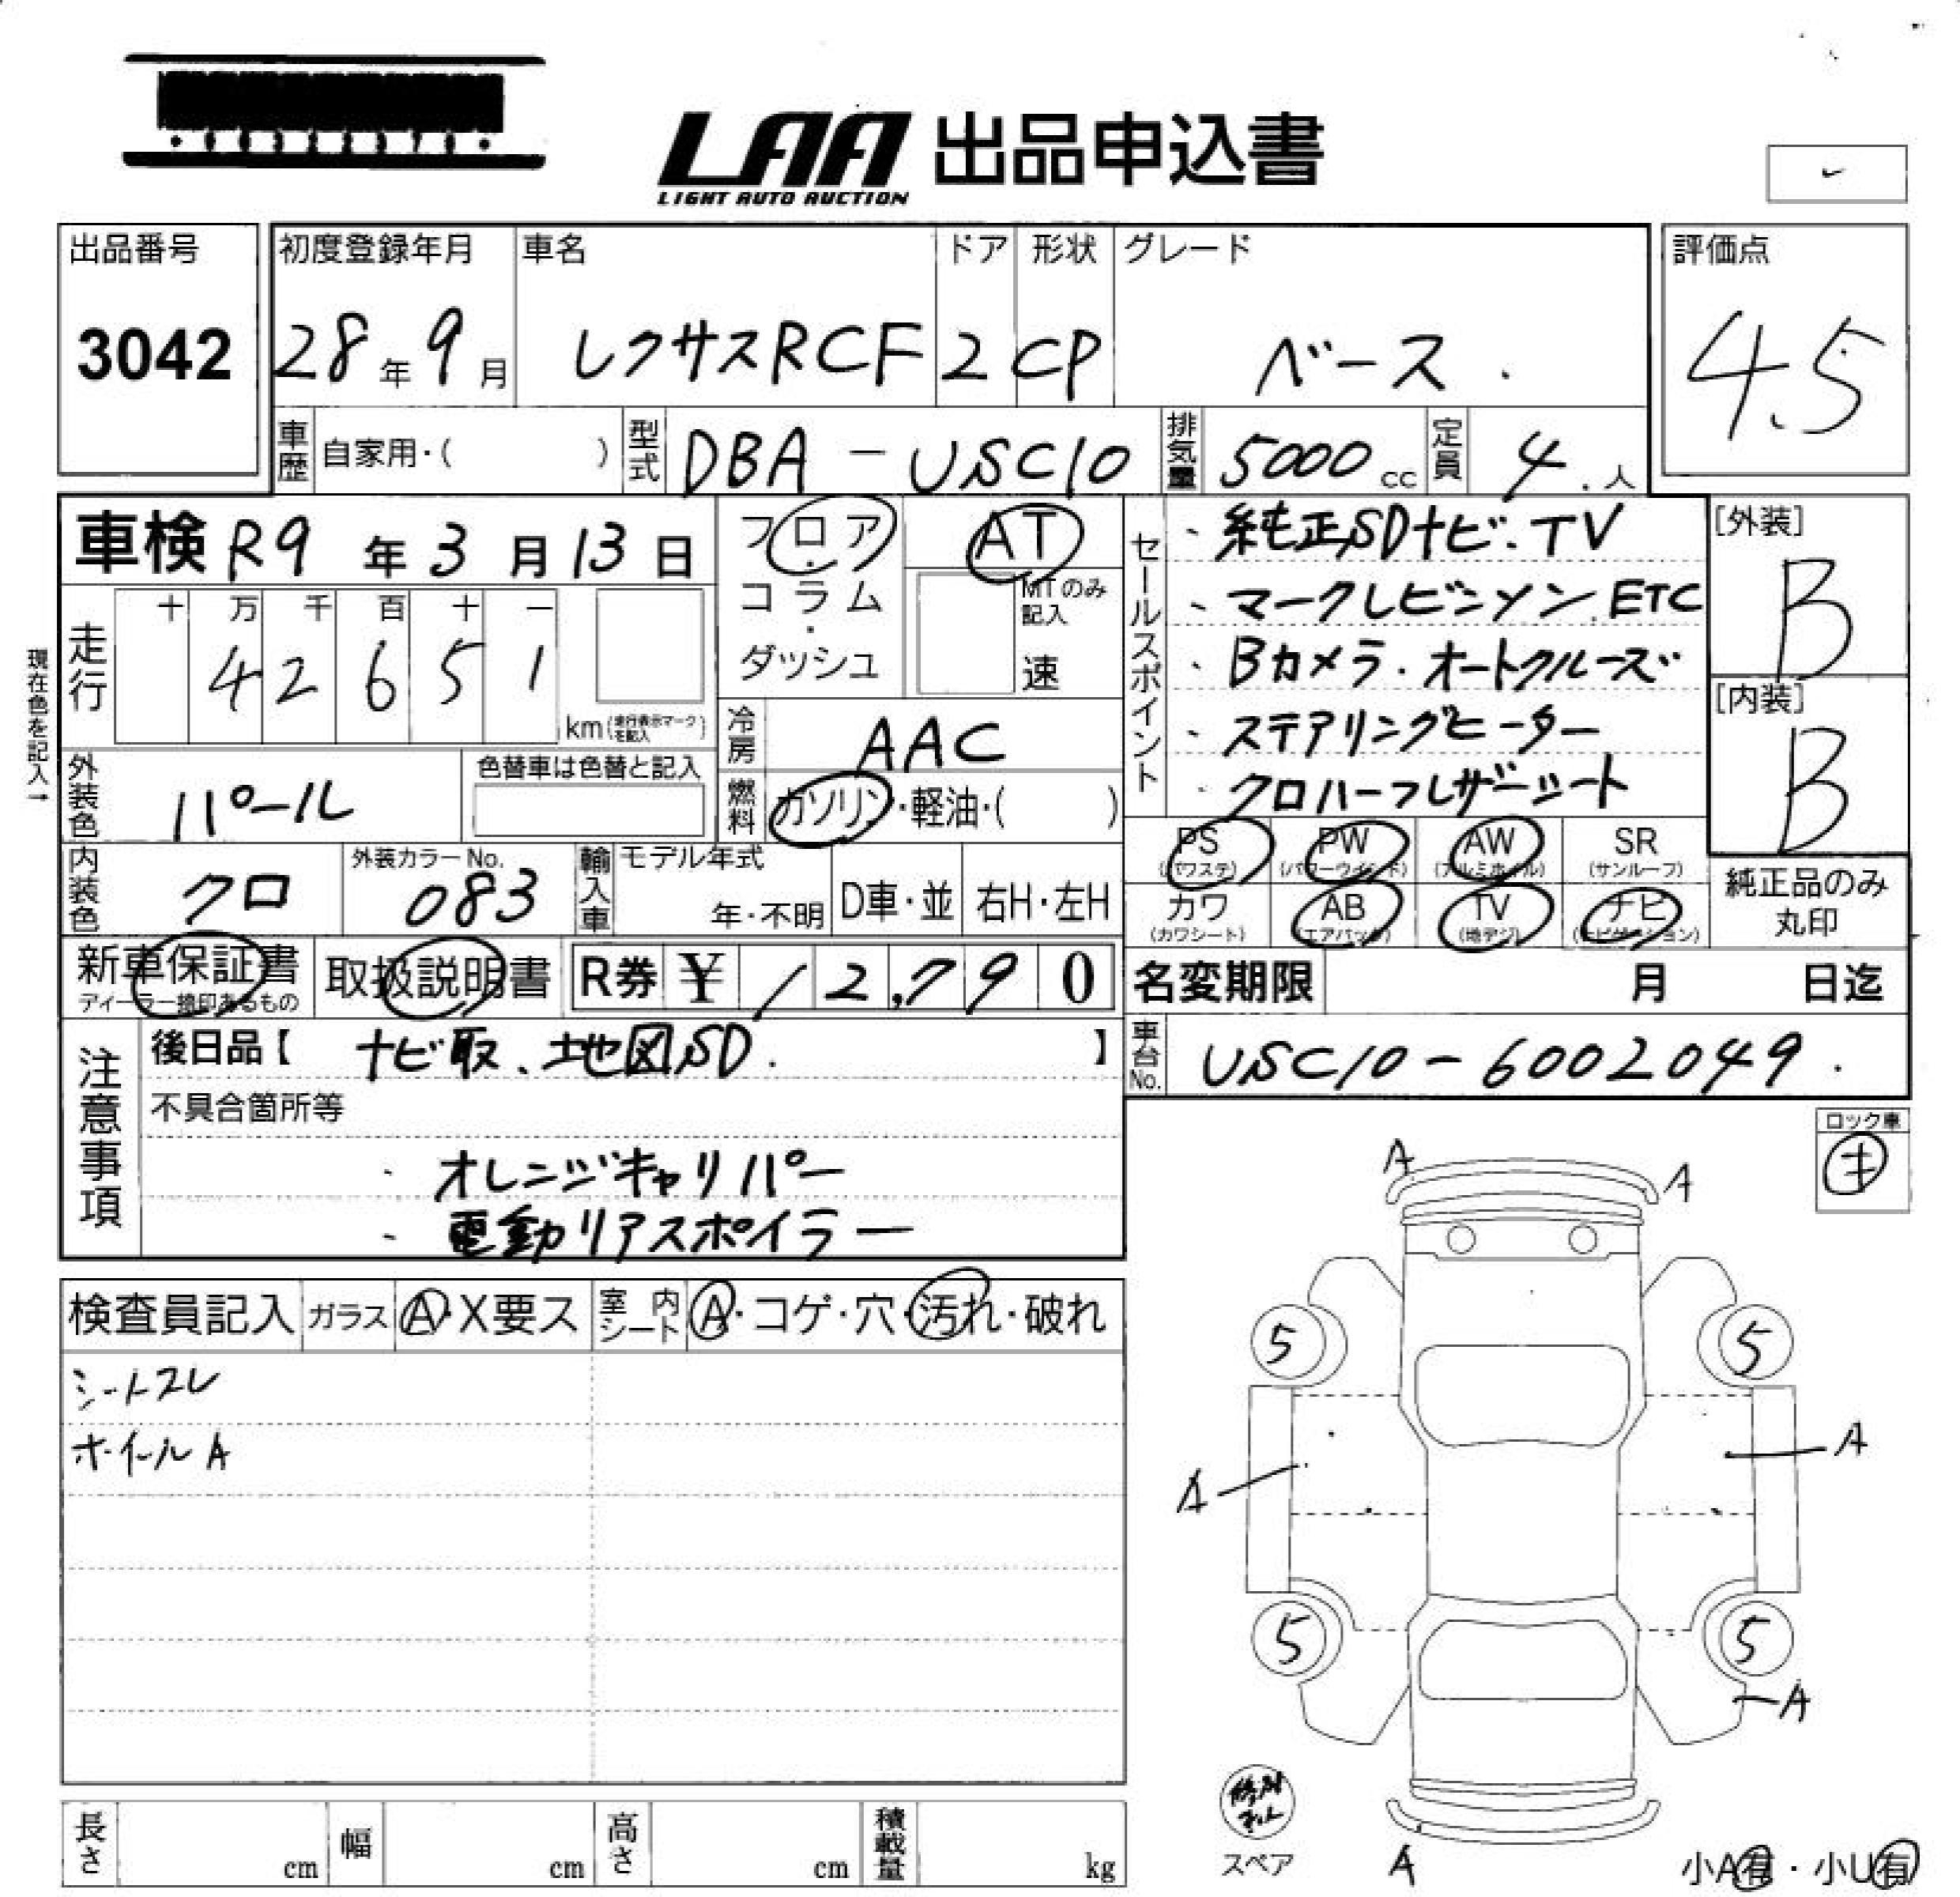 LAA 出品申込書
LIGHT AUTO AUCTION
出品番号
3042
初度登録年月
28年9月
車名
レクサスRCF
ドア
2
形状
CP
グレード
ベース
評価点
4.5
車歴 自家用・( )
型式 DBA-USC10
排気量 5000cc
定員 4人
車検 R9年3月13日
フロア
コラム
・
ダッシュ
AT
MTのみ記入
速
セールスポイント
・純正SDナビ.TV
・マークレビンソン.ETC
・Bカメラ.オートクルーズ
・ステアリングヒーター
・クロハーフレザーシート
[外装]
B
[内装]
B
現在色を記入→
走行
十 万 千 百 十 一
4 2 6 5 1
km(走行表示マークを記入)
冷房 AAC
燃料 ガソリン・軽油・( )
外装色 パール
色替車は色替と記入
PS (パワステ)
PW (パワーウインド)
AW (アルミホイル)
SR (サンルーフ)
カワ (カワシート)
AB (エアバック)
TV (地デジ)
ナビ (ナビゲーション)
純正品のみ
丸印
内装色 クロ
外装カラーNo.
083
輸入車
モデル年式
年・不明
D車・並
右H・左H
新車保証書
ディーラー捺印あるもの
取扱説明書
R券 ¥ 12,790
名変期限 月 日迄
注意事項
後日品【 ナビ取、地図SD. 】
車台No. USC10-6002049
不具合箇所等
・オレンジキャリパー
・電動リアスポイラー
ロック車
キ
検査員記入
ガラス A・X要ス
室内シート A・コゲ・穴・汚れ・破れ
シートスレ
ホイールA
A
A
5
5
A
A
5
5
A
A
スペア
小A有・小U有
長さ cm
幅 cm
高さ cm
積載量 kg